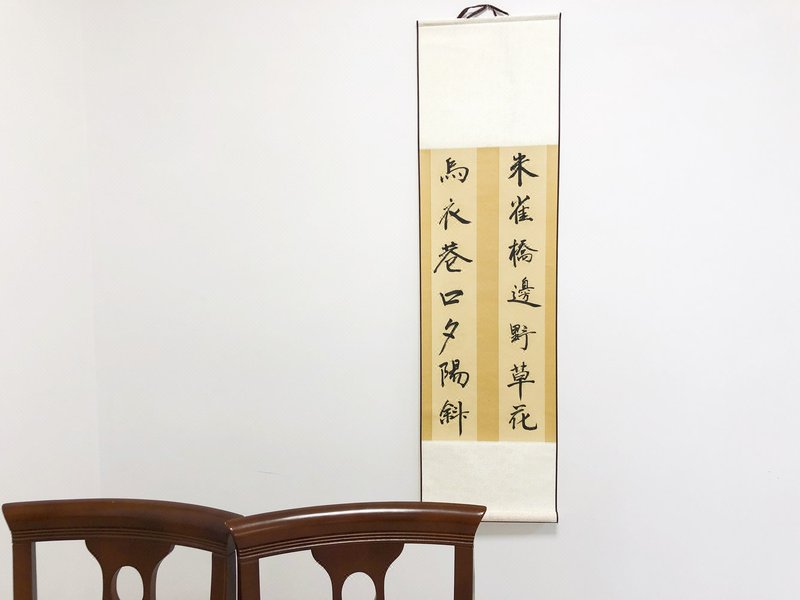 朱雀橋邊野草花
烏衣巷口夕陽斜